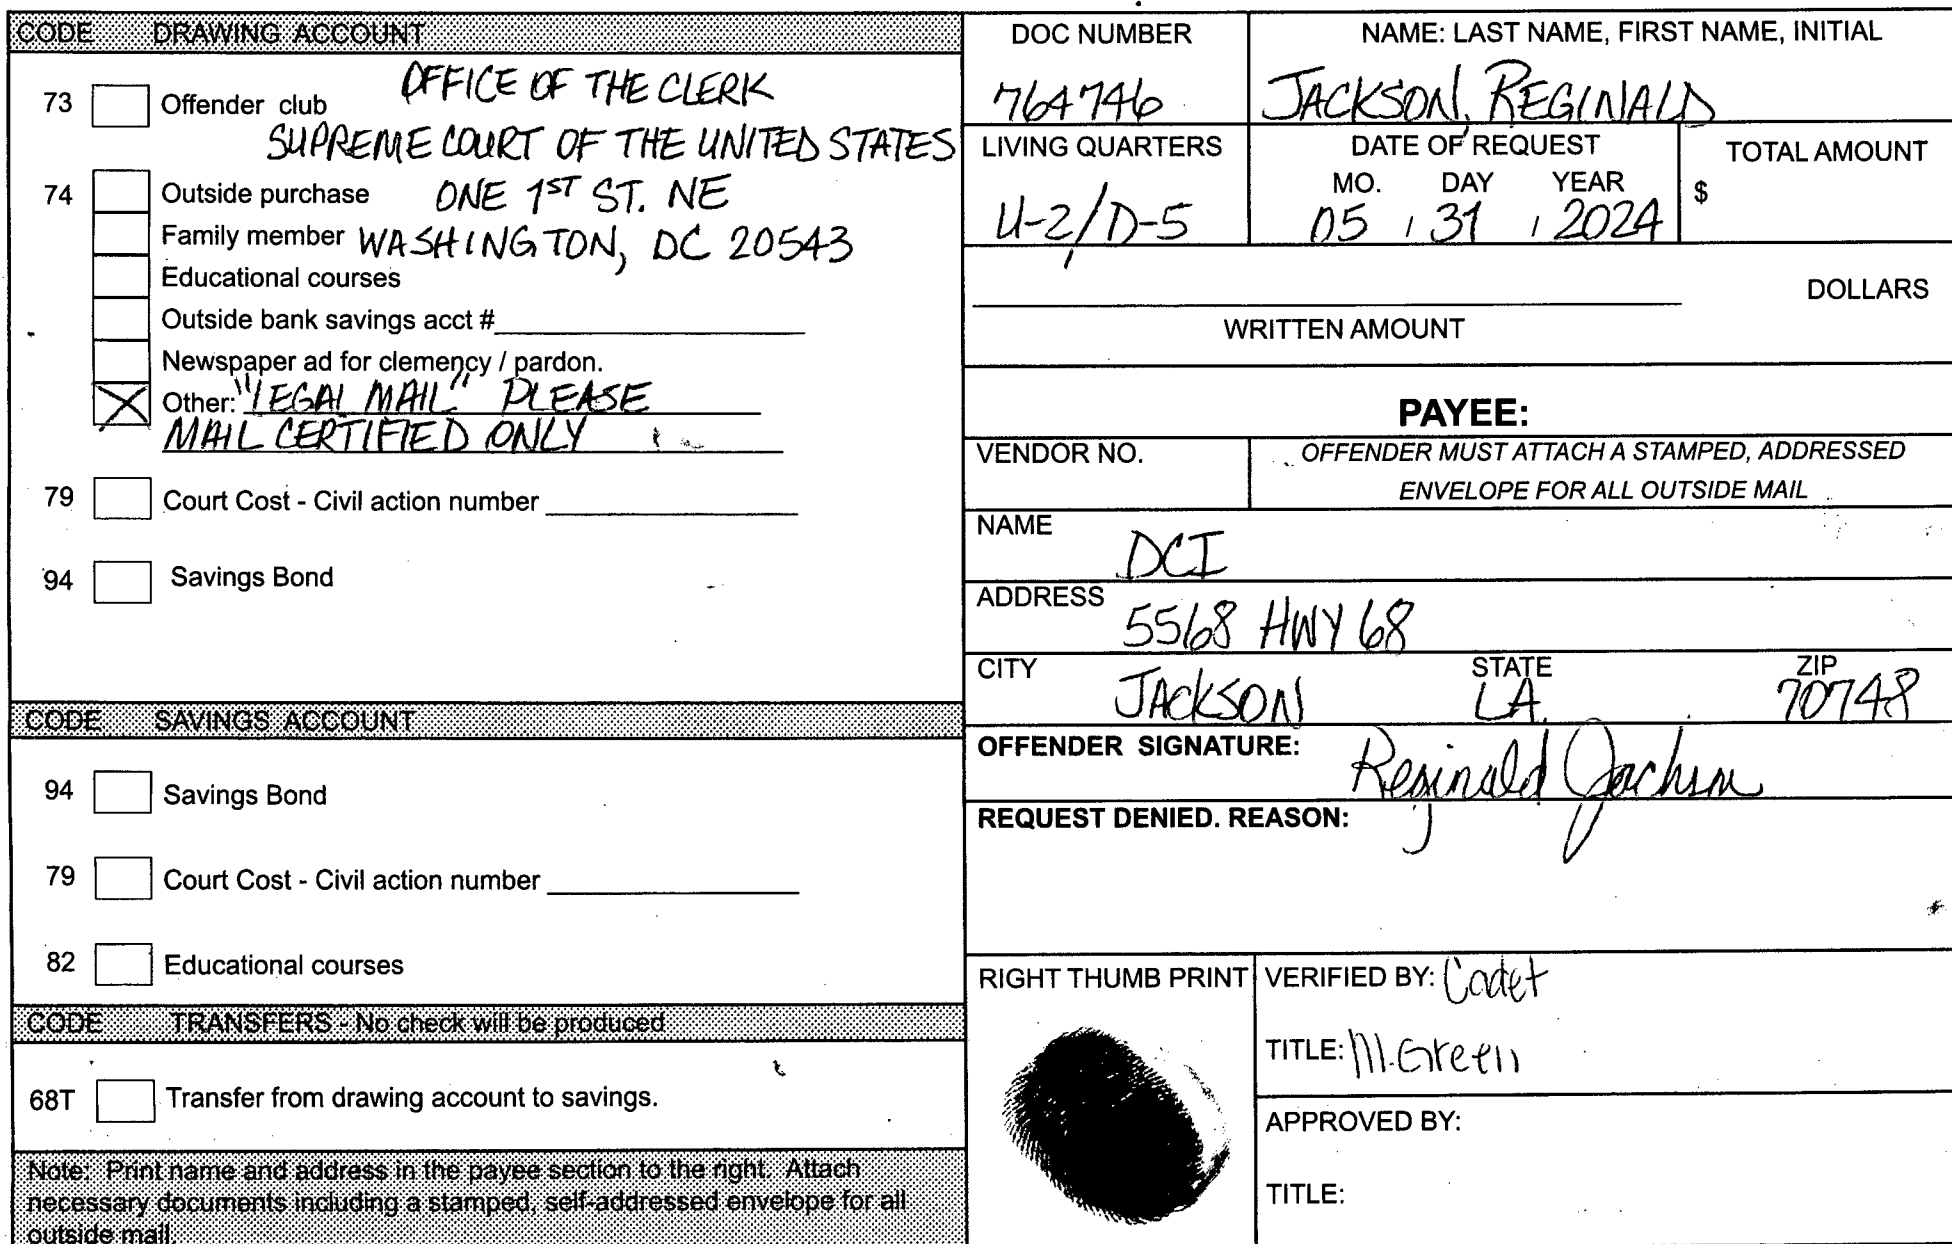 CODE DRAWING ACCOUNT
73 Offender club OFFICE OF THE CLERK
SUPREME COURT OF THE UNITED STATES
74 Outside purchase ONE 1ST ST. NE
Family member WASHINGTON, DC 20543
Educational courses
Outside bank savings acct #
Newspaper ad for clemency / pardon.
Other: "LEGAL MAIL" PLEASE
MAIL CERTIFIED ONLY
79 Court Cost - Civil action number
94 Savings Bond
CODE SAVINGS ACCOUNT
94 Savings Bond
79 Court Cost - Civil action number
82 Educational courses
CODE TRANSFERS - No check will be produced
68T Transfer from drawing account to savings.
Note: Print name and address in the payee section to the right. Attach
necessary documents including a stamped, self-addressed envelope for all
outside mail.
DOC NUMBER NAME: LAST NAME, FIRST NAME, INITIAL
764746 JACKSON, REGINALD
LIVING QUARTERS DATE OF REQUEST TOTAL AMOUNT
MO. DAY YEAR $
U-2/D-5 05 , 31 , 2024
DOLLARS
WRITTEN AMOUNT
PAYEE:
VENDOR NO. OFFENDER MUST ATTACH A STAMPED, ADDRESSED
ENVELOPE FOR ALL OUTSIDE MAIL
NAME DCI
ADDRESS 5568 HWY 68
CITY STATE ZIP
JACKSON LA. 70748
OFFENDER SIGNATURE: Reginald Jackson
REQUEST DENIED. REASON:
RIGHT THUMB PRINT VERIFIED BY: Cadet
TITLE: M. Green
APPROVED BY:
TITLE: